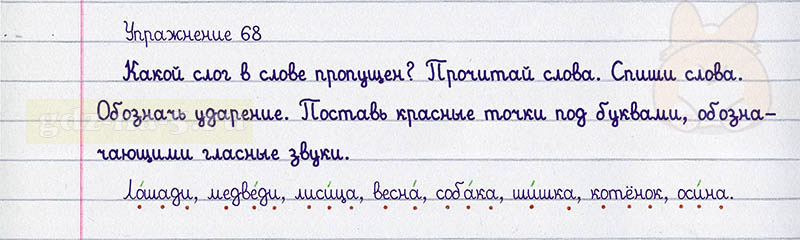 Упражнение 68
Какой слог в слове пропущен? Прочитай слова. Спиши слова.
Обозначь ударение. Поставь красные точки под буквами, обозна-
чающими гласные звуки.
Ло́шади, медве́ди, лиси́ца, весна́, соба́ка, ши́шка, котёнок, оси́на.